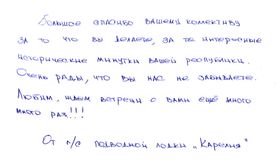 Большое спасибо вашему колективу
за то что вы делаете, за те интересные
исторические минутки вашей республики.
Очень рады, что вы нас не забываете.
Любим, ждем встречи с вами ещё много
много раз!!!
От л/с подводной лодки "Карелия"